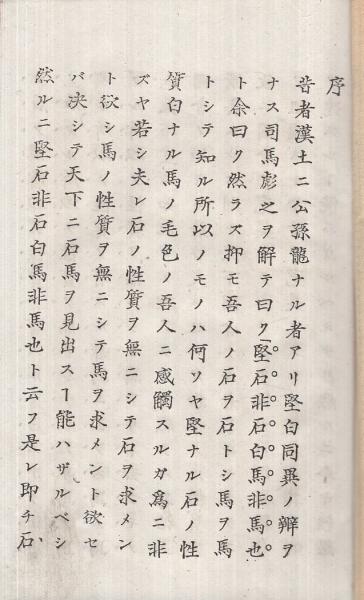 序
昔者漢土ニ公孫龍ナル者アリ堅白同異ノ辯ヲ
ナス司馬彪之ヲ解テ曰ク「堅石非石白馬非馬也
ト余曰ク然ラズ抑モ吾人ノ石ヲ石トシ馬ヲ馬
トシテ知ル所以ノモノハ何ソヤ堅ナル石ノ性
質白ナル馬ノ毛色ノ吾人ニ感觸スルガ爲ニ非
ズヤ若シ夫レ石ノ性質ヲ無ニシテ石ヲ求メン
ト欲シ馬ノ性質ヲ無ニシテ馬ヲ求メント欲セ
バ决シテ天下ニ石馬ヲ見出スヿ能ハザルベシ
然ルニ堅石非石白馬非馬也ト云フ是レ即チ石